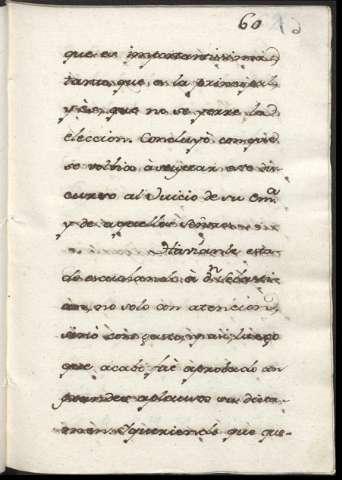 60
que es importantissima
tanto, que es la principal
y es, que no se yerre la
eleccion. Concluyò con que
se volbia à sugetar este dis
curso al Juicio de su Em.ª
y de aquellos señores
Havianle esta
do escuchando à D.n Sebasti
an, no solo con atencion,
sinò con gusto, y asi luego
que acabò fue aprobado con
grandes aplausos su dicta
men. Y queriendo que que-